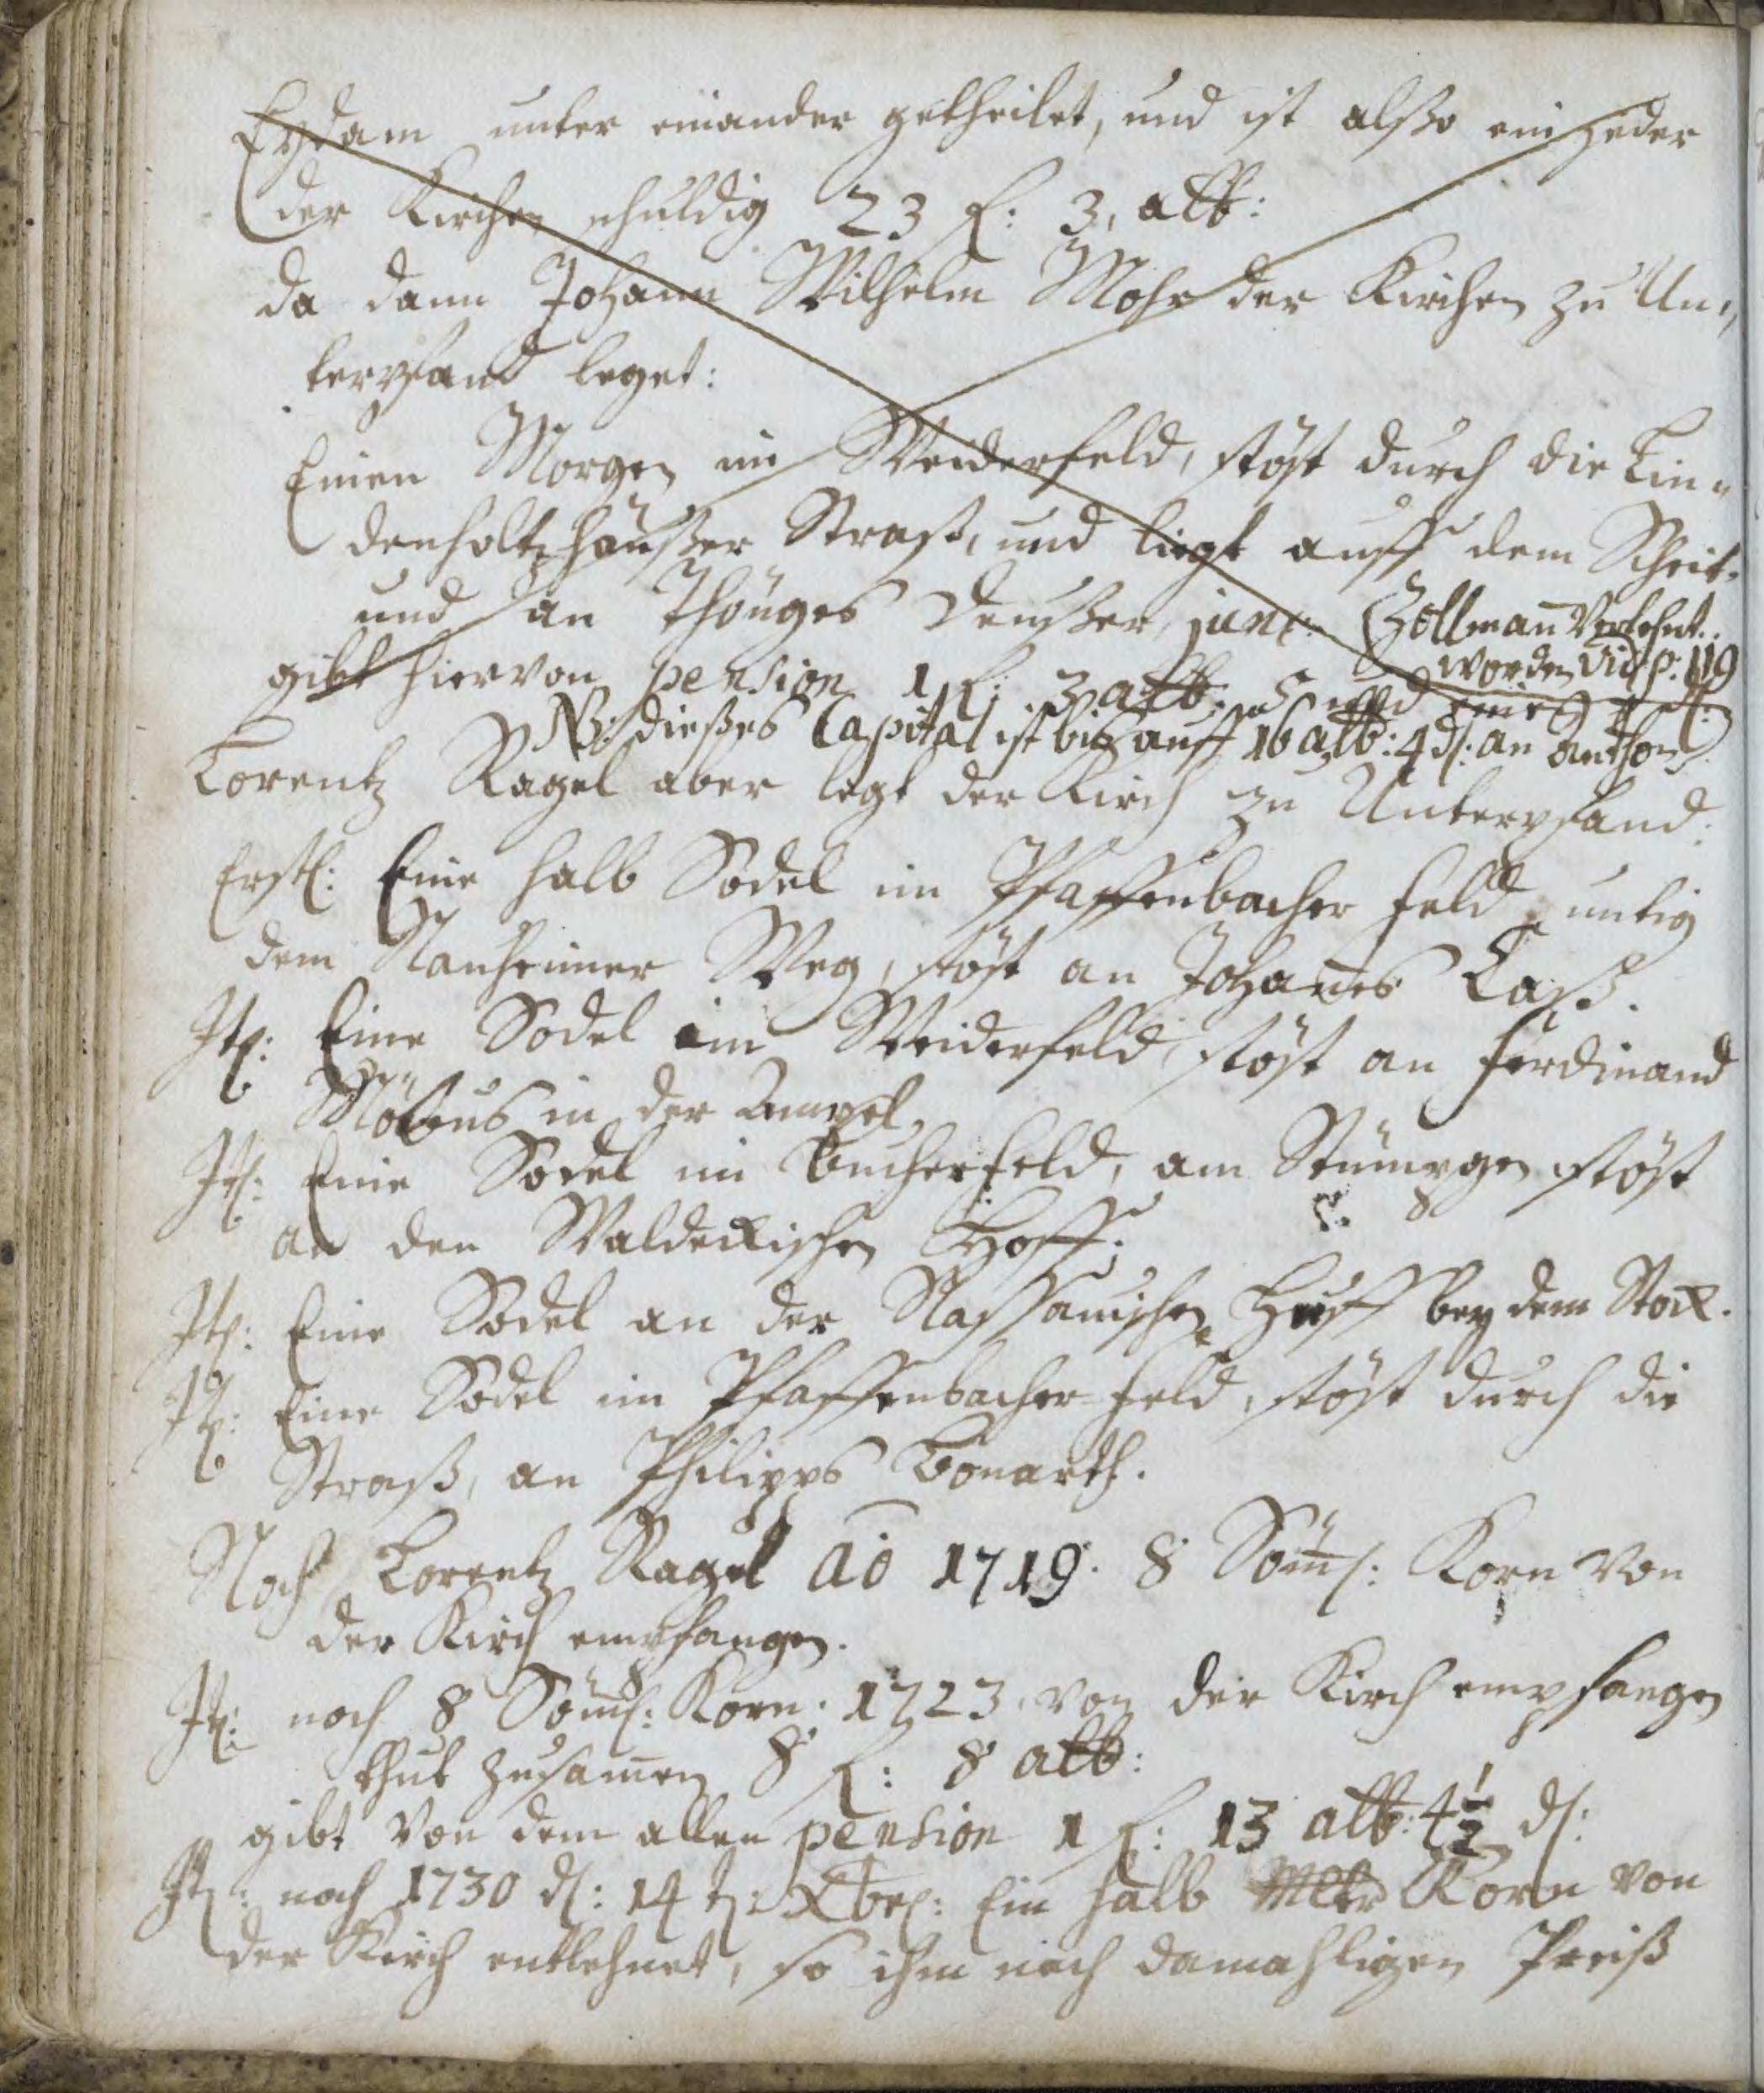 Eydam unter einander getheilet, und ist alßo ein jeder
der Kirchen schuldig 23 f: 3, alb:
da dann Johann Wilhelm Mohr der Kirchen zu Un,,
terpfand leget:
Einen Morgen im Weiderfeld, stöst durch die Lin,,
denholtzhäußer Straß, und liegt auff dem Scheit,
und an Thönges Deußer, jun:
gibt hiervon pension 1 f: 3 alb: 5
NB: dießes Capital ist bis auff 16 alb: 4 d: an Anthon
Zollman̄ Verlehnt
worden vid p: 119
Lorentz Nagel aber legt der Kirch zu Unterpfand:
Erstl: Eine halb Sodel im Pfaffenbacher Feld, untig
dem Nauheimer Weg, stöst an Johan̄es Laß.
It: Eine Sodel im Weiderfeld, stöst an Ferdinand
Möbus in der
It: Eine Sodel im Bucherfeld, am Stümpgen stöst
an den Waldeckischen Hoff.
It: Eine Sodel an der Nassauischen Huff bey dem Stock.
It: Eine Sodel im Pfaffenbacher-Feld, stöst durch die
Straß, an Philipps Bonarth.
Noch Lorentz Nagel Ao 1719. 8 Söm̄: Korn von
der Kirch empfangen.
It: noch 8 Söm̄: Korn. 1723 von der Kirch empfangen
thut zusam̄en 8 f: 8 alb:
gibt von dem allen pension 1 f: 13 alb: 4½ d:
It: noch 1730 d: 14 t: Xbr: Ein halb Mltr Korn von
der Kirch entlehnet, so ihm nach damahligen Preiß